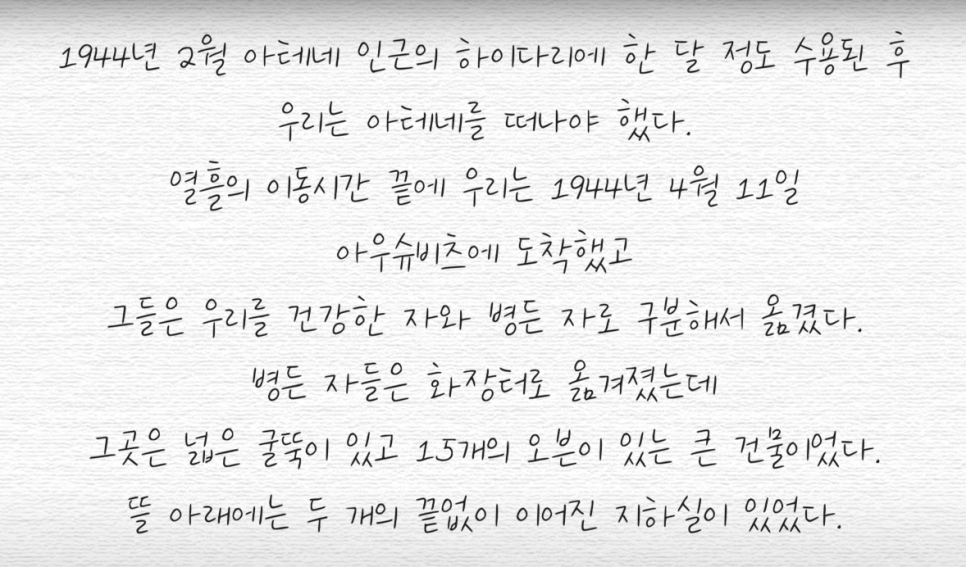 1944년 2월 아테네 인근의 하이다리에 한 달 정도 수용된 후
우리는 아테네를 떠나야 했다.
열흘의 이동시간 끝에 우리는 1944년 4월 11일
아우슈비츠에 도착했고
그들은 우리를 건강한 자와 병든 자로 구분해서 옮겼다.
병든 자들은 화장터로 옮겨졌는데
그곳은 넓은 굴뚝이 있고 15개의 오븐이 있는 큰 건물이었다.
뜰 아래에는 두 개의 끝없이 이어진 지하실이 있었다.